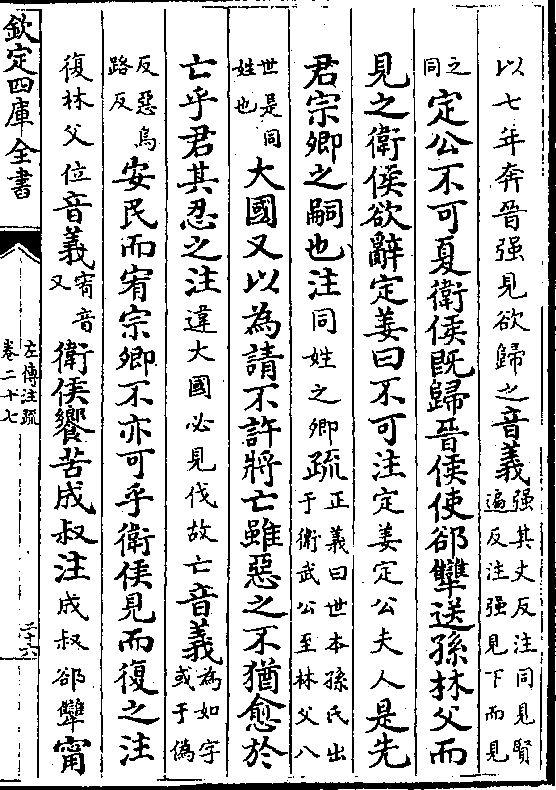 以七年奔晉强見欲歸之音義强其丈反注同見賢遍反注强見下而見
之同定公不可夏衛侯旣歸晉侯使郤犨送孫林父而
見之衛侯欲辭定姜曰不可注定姜定公夫人是先
君宗卿之嗣也注同姓之卿疏正義曰世本孫氏出于衛武公至林父八
世是同姓也大國又以為請不許將亡雖惡之不猶愈於
亡乎君其忍之注違大國必見伐故亡音義為如字或于偽
反惡烏路反安民而宥宗卿不亦可乎衛侯見而復之注
復林父位音義宥音又衛侯饗苦成叔注成叔郤犨甯
欽定四庫全書
左傳注疏
卷二十七
二十六